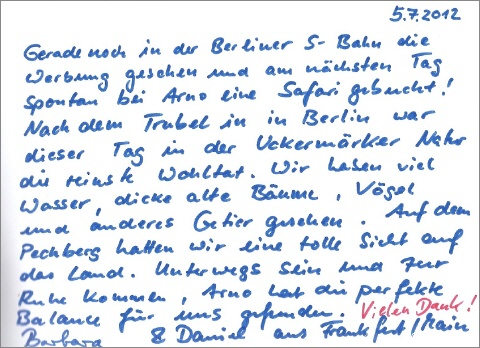 5.7.2012
Gerade noch in der Berliner S-Bahn die
Werbung gesehen und am nächsten Tag
spontan bei Arno eine Safari gebucht!
Nach dem Trubel in in Berlin war
dieser Tag in der Uckermärker Natur
die reinste Wohltat. Wir haben viel
Wasser, dicke alte Bäume, Vögel
und anderes Getier gesehen. Auf dem
Pechberg hatten wir eine tolle Sicht auf
das Land. Unterwegs sein und zur
Ruhe kommen, Arno hat die perfekte
Balance für uns gefunden. Vielen Dank!
Barbara & Daniel aus Frankfurt/Main